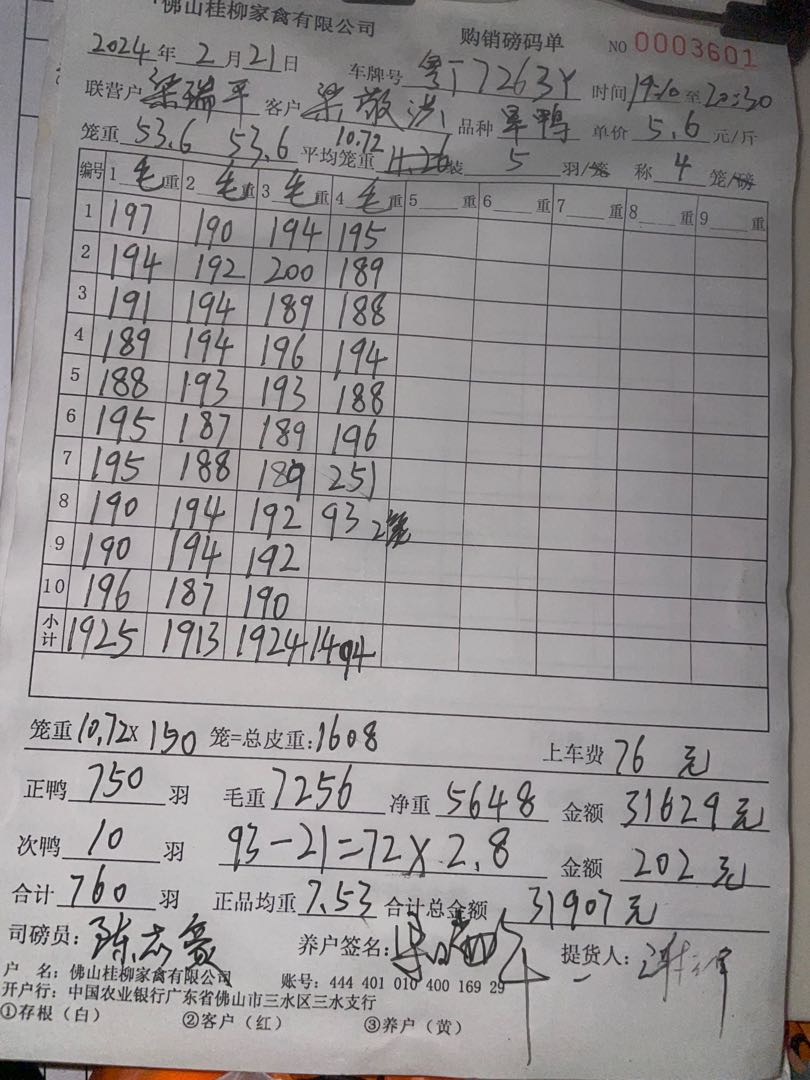 佛山桂柳家禽有限公司
购销磅码单 NO 0003601
2024年2月21日 车牌号 粤J7263Y 时间19:10至20:30
联营户 梁瑞平 客户 梁敬洪 品种 单鸭 单价 5.6 元/斤
笼重 53.6 53.6 平均笼重 10.72 装 5 羽/笼 称 4 笼/磅
编号 1毛重 2毛重 3毛重 4毛重 5 重 6 重 7 重 8 重 9 重
1 197 190 194 195
2 194 192 200 189
3 191 194 189 188
4 189 194 196 194
5 188 193 193 188
6 195 187 189 196
7 195 188 189 251
8 190 194 192 93 2笼
9 190 194 192
10 196 187 190
小计 1925 1913 1924 1494
笼重 10.72×150 笼=总皮重:1608 上车费 76 元
正鸭 750 羽 毛重 7256 净重 5648 金额 31629元
次鸭 10 羽 93-21=72×2.8 金额 202元
合计 760 羽 正品均重 7.53 合计总金额 31907元
司磅员: 陈志豪 养户签名: 提货人:
户 名: 佛山桂柳家禽有限公司 账号: 444 401 010 400 169 29
开户行: 中国农业银行广东省佛山市三水区三水支行
①存根（白） ②客户（红） ③养户（黄）